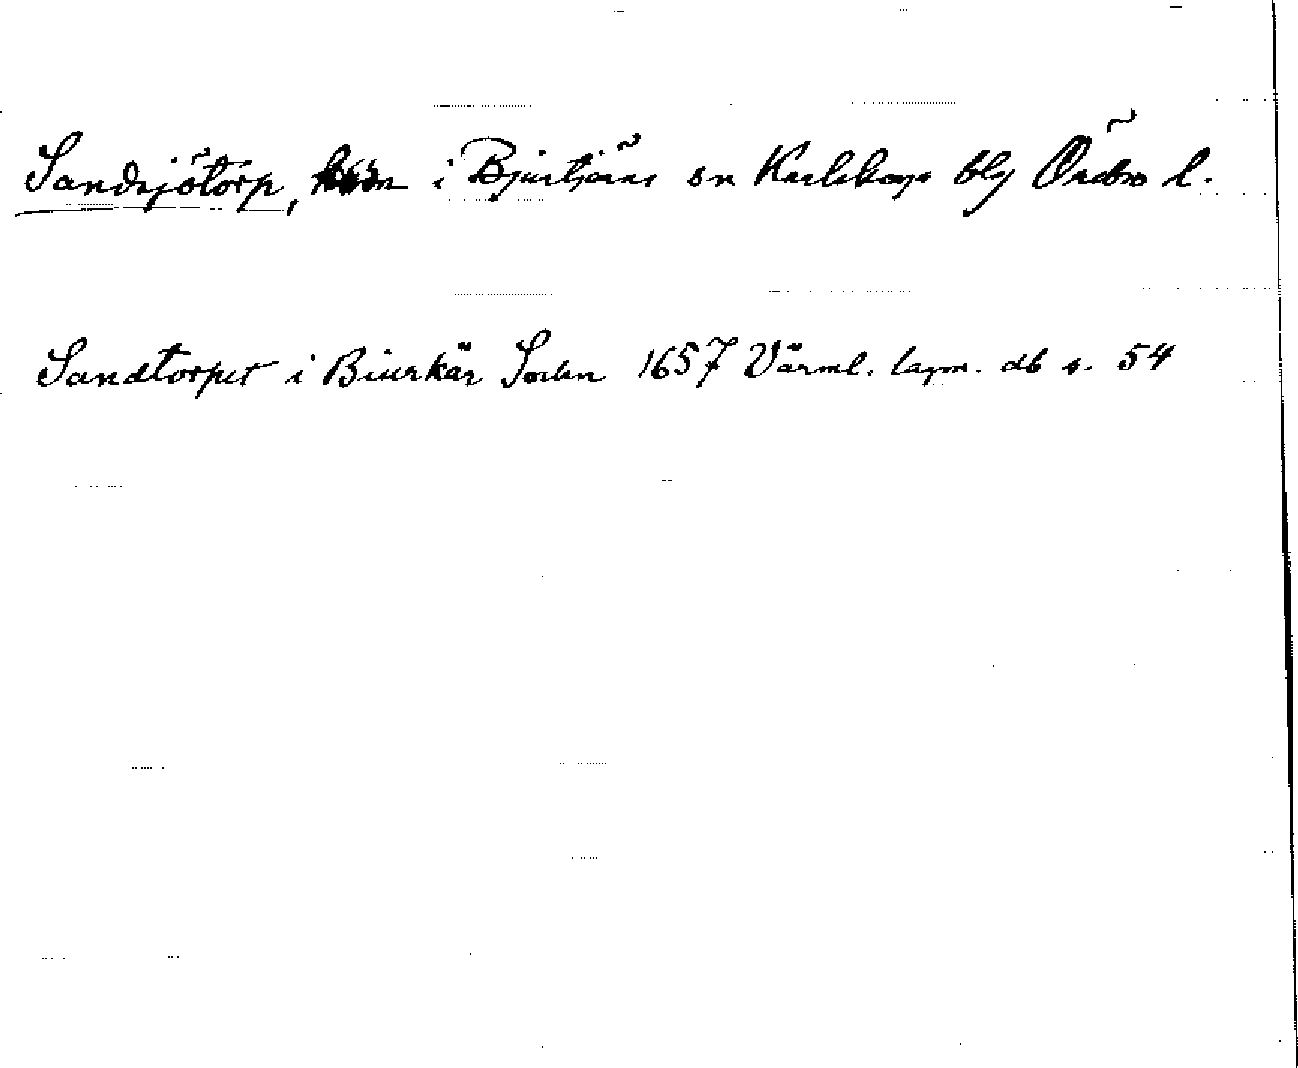 Sandsjötorp, i Bjurtjärns sn Karlskoga blg Örebro l.
Sandtorpet i Biurkär Sochn 1657 Värml. lagm. db s. 54